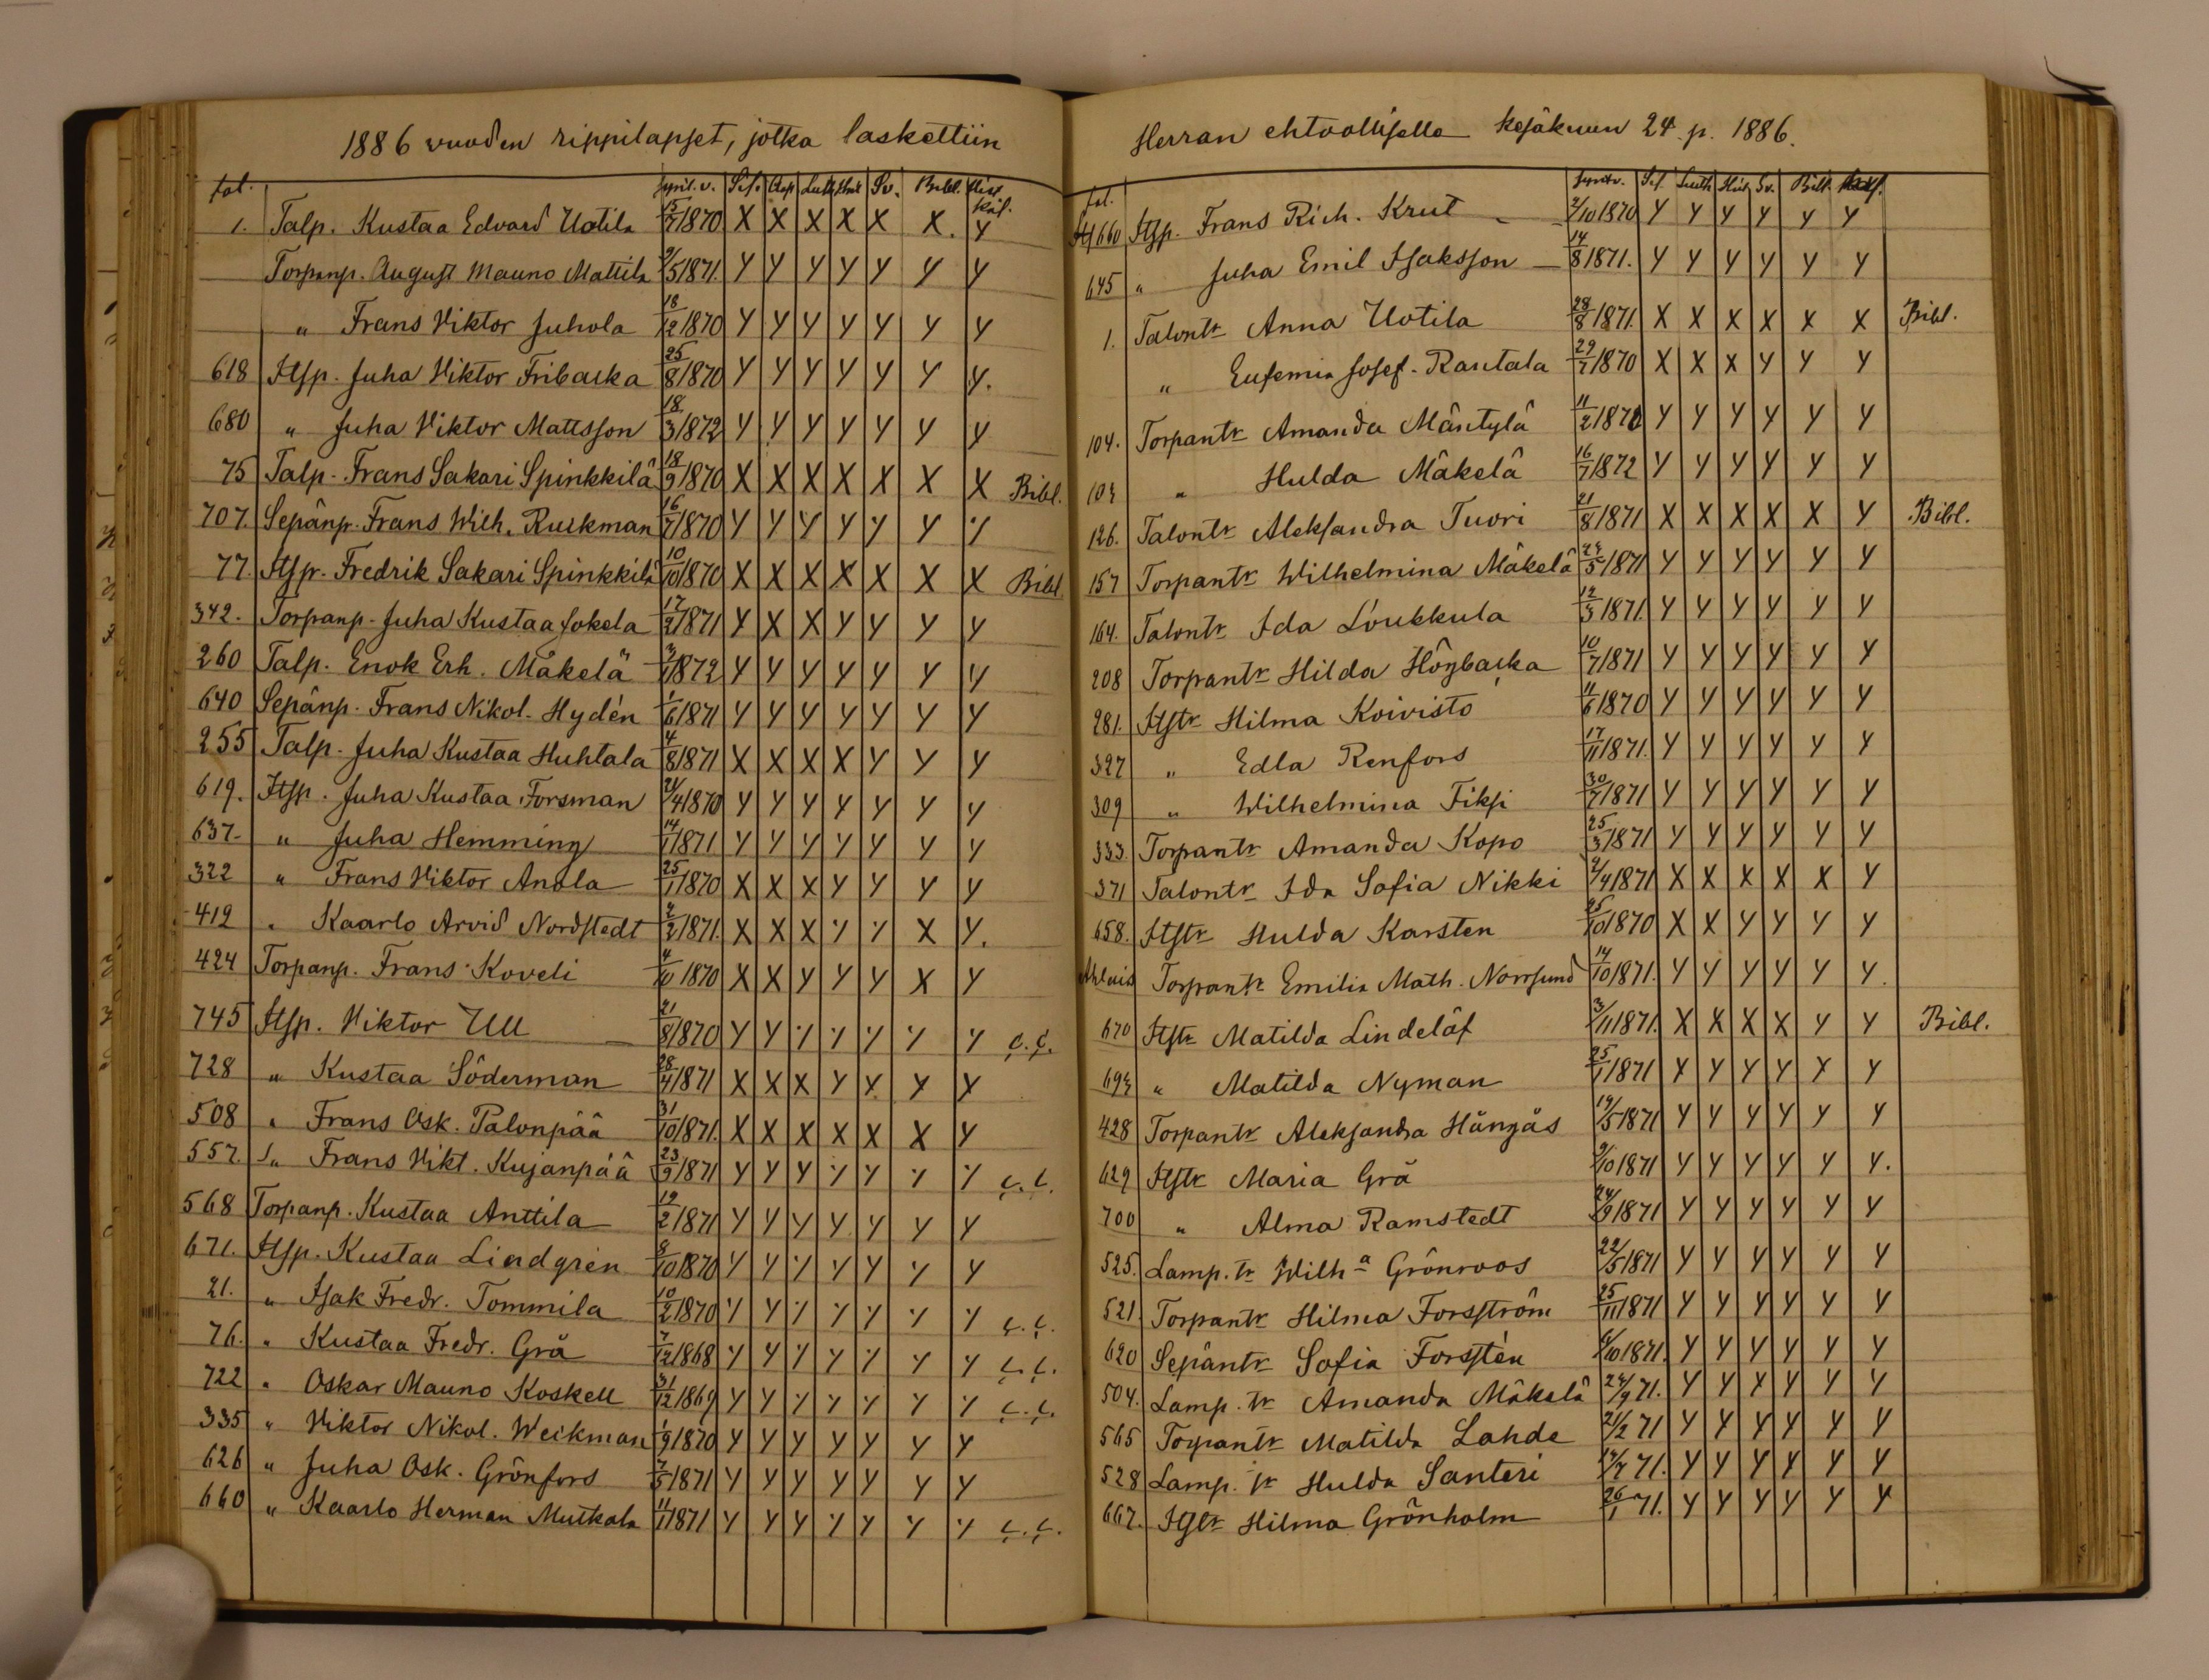 1886 vuoden rippilapset, jotka laskettiin
fol. synt. v. Sis. Luth Sv. Bibl.
1. Talp. Kustaa Edvard Uotila 15/7 1870 X X X X X X. Y
Torpanp. August Mauno Mattila 9/5 1871. Y Y Y Y Y Y Y
" Frans Viktor Juhola 18/12 1870 Y Y Y Y Y Y Y
618 Itsp. Juha Viktor Fribacka 25/8 1870 Y Y Y Y Y Y Y.
680 " Juha Viktor Mattsson 18/3 1872 Y Y Y Y Y Y Y
75 Talp. Frans Sakari Spinkkilä 18/9 1870 X X X X X X X Bibl.
707. Sepänp. Frans Wilh. Ruckman 16/7 1870 Y Y Y Y Y Y Y
77. Itsp. Fredrik Sakari Spinkkilä 10/10 1870 X X X X X X X Bibl.
342. Torpanp. Juha Kustaa Jokela 17/2 1871 Y X X Y Y Y Y
260 Talp. Enok Erh. Mäkelä 3/1 1872 Y Y Y Y Y Y Y
640 Sepänp. Frans Nikol. Hydén 1/6 1871 Y Y Y Y Y Y Y
255 Talp. Juha Kustaa Huhtala 4/8 1871 X X X X Y Y Y
619. Itsp. Juha Kustaa Forsman 21/4 1870 Y Y Y Y Y Y Y
637. " Juha Hemming 14/1 1871. Y Y Y Y Y Y Y
322 " Frans Viktor Anola 25/1 1870 X X X Y Y Y Y
412 " Kaarlo Arvid Nordstedt 2/2 1871. X X X Y Y X Y.
424 Torpanp. Frans Koveli 4/10 1870 X X Y Y Y X Y
745 Itsp. Viktor Ull 21/8 1870 Y Y Y Y Y Y Y c.c.
728 " Kustaa Söderman 28/4 1871 X X X Y X Y Y
508 " Frans Osk. Palonpää 31/10 1871. X X X X X X Y
557. " Frans Vikt. Kujanpää 23/9 1871 Y Y Y Y Y Y Y c.c.
568 Torpanp. Kustaa Anttila 19/2 1871 Y Y Y Y Y Y Y
671. Itsp. Kustaa Lindgren 8/10 1870 Y Y Y Y Y Y Y
21. " Isak Fredr. Tommila 10/2 1870 Y Y Y Y Y Y Y c.c.
76. " Kustaa Fredr. Grå 7/12 1868 Y Y Y Y Y Y Y c.c.
722 " Oskar Mauno Koskell 31/12 1869 Y Y Y Y Y Y Y c.c.
335 " Viktor Nikol. Weckman 1/9 1870 Y Y Y Y Y Y Y
626 " Juha Osk. Grönfors 7/5 1871 Y Y Y Y Y Y Y
660 " Kaarlo Herman Mutkala 11/1 1871 Y Y Y Y Y Y Y c.c.
Herran ehtoolliselle kesäkuun 24 p. 1886.
fol. Sis. Luth Hist Sv. Bibl.
660 Itsp. Frans Rich. Krut 2/10 1870 Y Y Y Y Y Y
645 " Juha Emil Isaksson 14/8 1871. Y Y Y Y Y Y
1. Talontr Anna Uotila 28/8 1871. X X X X X X Bibl.
" Eufemia Josef. Rantala 29/7 1870 X X X Y Y Y
104. Torpantr Amanda Mäntylä 11/2 1872 Y Y Y Y Y Y
103 " Hulda Mäkelä 16/7 1872 Y Y Y Y Y Y
126. Talontr Aleksandra Tuori 21/8 1871 X X X X X Y Bibl.
157 Torpantr Wilhelmina Mäkelä 24/5 1871 Y Y Y Y Y Y
164. Talontr Ida Loukkula 12/3 1871. Y Y Y Y Y Y
208 Torpantr Hilda Högbacka 10/7 1871 Y Y Y Y Y Y
281. Itstr Hilma Koivisto 11/6 1870 Y Y Y Y Y Y
327 " Edla Renfors 17/11 1871. Y Y Y Y Y Y
309 " Wilhelmina Fiksi 30/7 1871 Y Y Y Y Y Y
333. Torpantr Amanda Kopo 25/3 1871 Y Y Y Y Y Y
371 Talontr Ida Sofia Nikki 2/4 1871 X X X X X Y
658. Itstr Hulda Karsten 25/10 1870 X X Y Y Y Y
Ahlais Torpantr Emilia Math. Norrsund 14/10 1871. Y Y Y Y Y Y.
670 Itstr Matilda Lindelöf 3/11 1871. X X X X Y Y Bibl.
693 " Matilda Nyman 25/1 1871 Y Y Y Y Y Y
428 Torpantr Aleksandra Hångås 19/5 1871 Y Y Y Y Y Y
629 Itstr Maria Grå 9/10 1871 Y Y Y Y Y Y.
700 " Alma Ramstedt 24/9 1871 Y Y Y Y Y Y
525. Lamp. tr Wilh a Grönroos 22/5 1871 Y Y Y Y Y Y
521. Torpantr Hilma Forsström 25/11 1871 Y Y Y Y Y Y
620 Sepäntr Sofia Forstén 6/10 1871. Y Y Y Y Y Y
504. Lamp. tr Amanda Mäkelä 24/9 71. Y Y X Y Y Y
565 Torpantr Matilda Lahde 21/2 71 Y Y Y Y Y Y
528 Lamp. tr Hulda Santeri 17/7 71. Y Y Y Y Y Y
667. Itstr Hilma Grönholm 26/1 71. Y Y Y Y Y Y